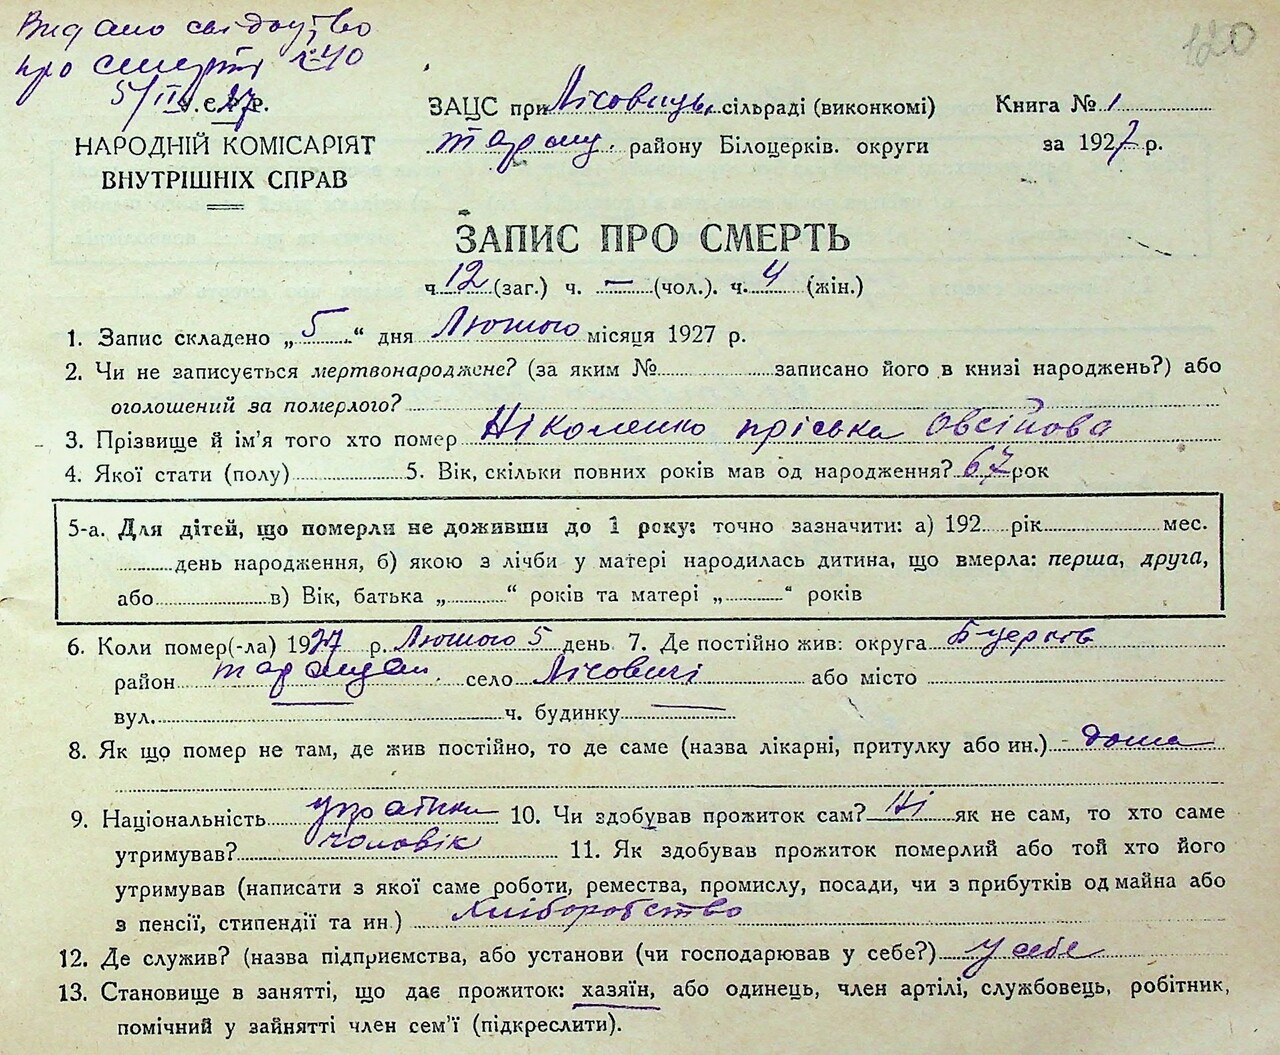 Видано свідоцтво
про смерть №40
5/II 27
120
У.С.Р.Р.
НАРОДНІЙ КОМІСАРІЯТ
ВНУТРІШНІХ СПРАВ
ЗАЦС при Лісовиць. сільраді (виконкомі)
Таращ. району Білоцерків. округи
Книга № 1
за 1927 р.
ЗАПИС ПРО СМЕРТЬ
ч. 12 (заг.) ч. — (чол.). ч. 4 (жін.)
1. Запис складено „ 5 “ дня Лютого місяця 1927 р.
2. Чи не записується мертвонароджене? (за яким № записано його в книзі народжень?) або
оголошений за померлого?
3. Прізвище й ім'я того хто помер Ніколенко Пріська Овсійова
4. Якої стати (полу) 5. Вік, скільки повних років мав од народження? 67 рок
5-а. Для дітей, що померли не доживши до 1 року: точно зазначити: а) 192 рік мес.
день народження, б) якою з лічби у матері народилась дитина, що вмерла: перша, друга,
або в) Вік, батька „ “ років та матері „ “ років
6. Коли помер(-ла) 1927 р. Лютого 5 день 7. Де постійно жив: округа Б церків
район Таращан. село Лісовичі або місто
вул. ч. будинку —
8. Як що помер не там, де жив постійно, то де саме (назва лікарні, притулку або ин.) дома
9. Національність українка 10. Чи здобував прожиток сам? Ні як не сам, то хто саме
утримував? чоловік 11. Як здобував прожиток померлий або той хто його
утримував (написати з якої саме роботи, ремества, промислу, посади, чи з прибутків од майна або
з пенсії, стипендії та ин.) Хліборобство
12. Де служив? (назва підприємства, або установи (чи господарював у себе?) у себе
13. Становище в занятті, що дає прожиток: хазяїн, або одинець, член артілі, службовець, робітник,
помічний у зайнятті член сем'ї (підкреслити).